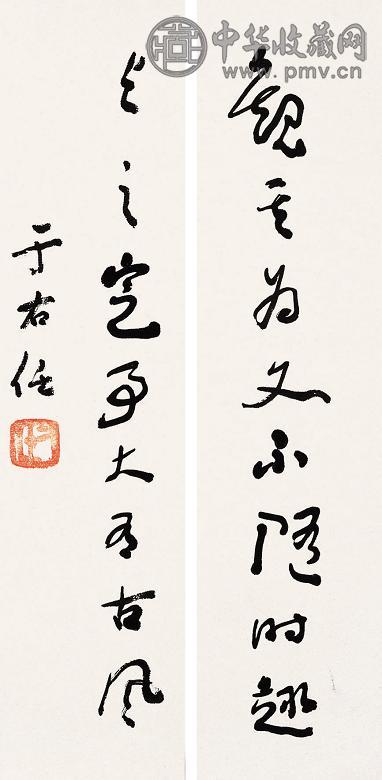 中华收藏网
www.pmv.cn
观其为文不随时趣
与之定交大有古风
于右任